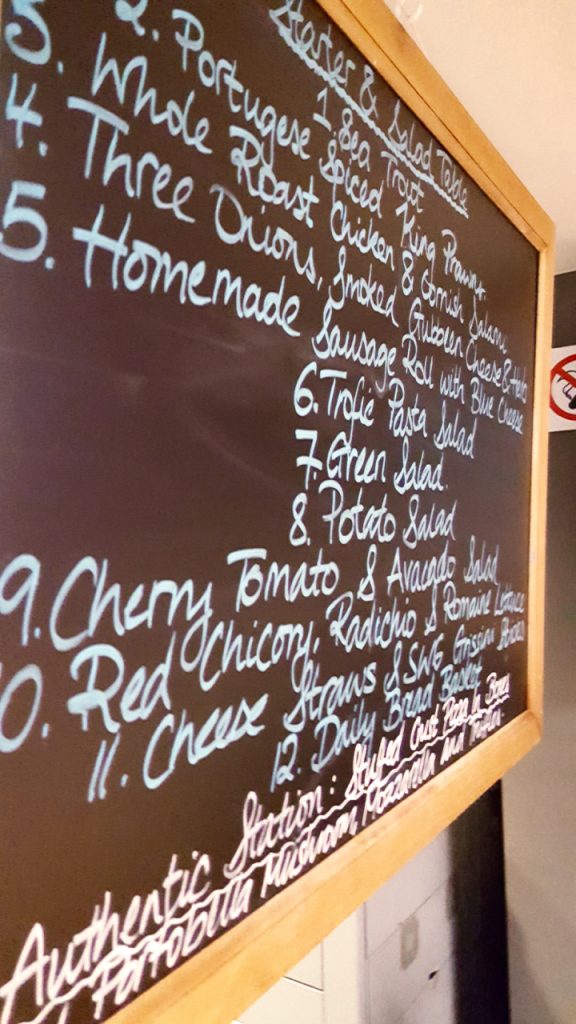 Starter & Salad Table
1. Sea Trout
2. Portugese Spiced King Prawns.
3. Whole Roast Chicken & Cornish Salami
4. Three Onions, Smoked Gubbeen Cheese &
5. Homemade Sausage Roll with Blue Cheese
6. Trofie Pasta Salad
7. Green Salad.
8. Potato Salad
9. Cherry Tomato & Avacado Salad
10. Red Chicory, Radichio & Romaine Lettuce
11. Cheese Straws & SW6 Grissini Sticks
12. Daily Bread Basket
Authentic Station: Stuffed Crust Pizza in Boxes
Portobella Mushroom, Mozzarella and Truffle.